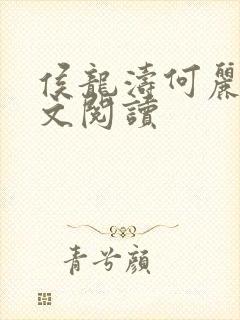 侯龍濤何麗
文閱讀
青兮顏